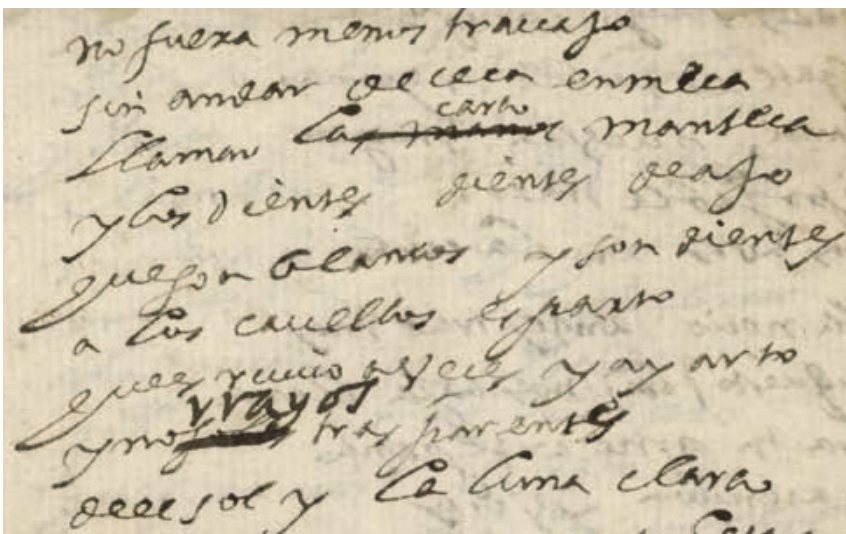 no fuera menos travajo
sin andar de ceca en meca
llamar la cara manteca
y los dientes dientes de ajo
que son blancos y son dientes
a los cavellos esparto
que es ruvio a veçes y ay arto
y no rrayos trasparentes
del sol y la luna clara